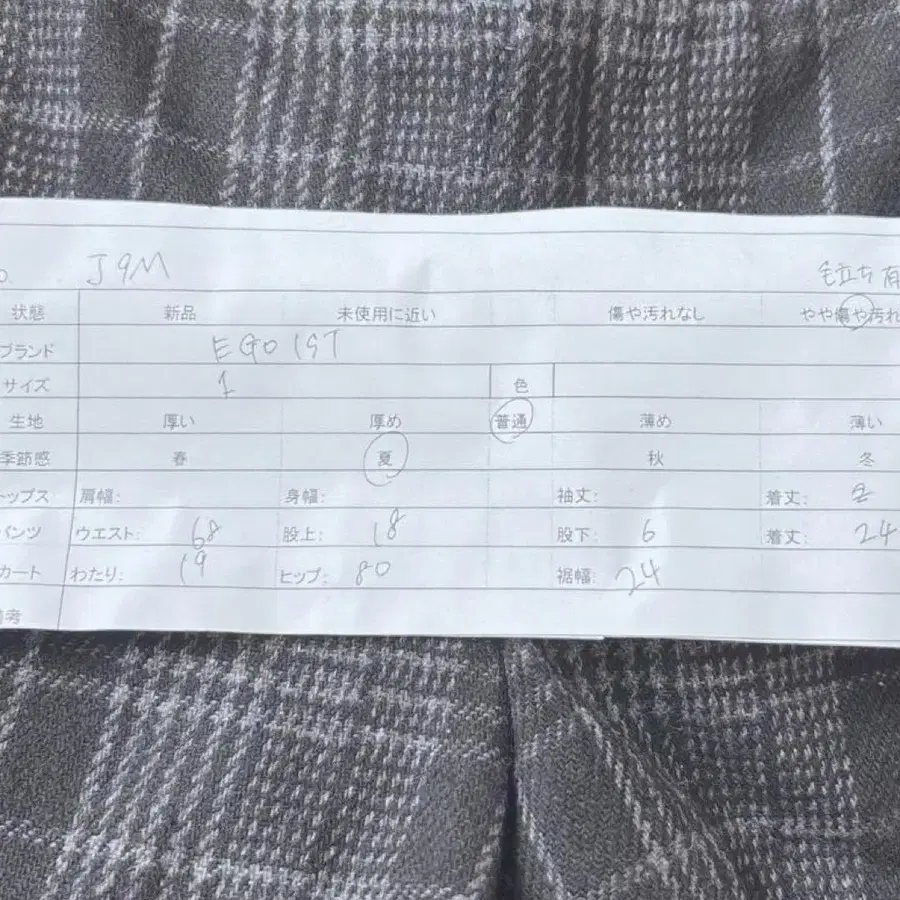 J9M 毛立ち有
状態 新品 未使用に近い 傷や汚れなし やや傷や汚れ
ブランド EGOIST
サイズ 1 色
生地 厚い 厚め 普通 薄め 薄い
季節感 春 夏 秋 冬
トップス 肩幅: 身幅: 袖丈: 着丈:
パンツ ウエスト: 68 股上: 18 股下: 6 着丈: 24
カート わたり: 19 ヒップ: 80 裾幅: 24
備考